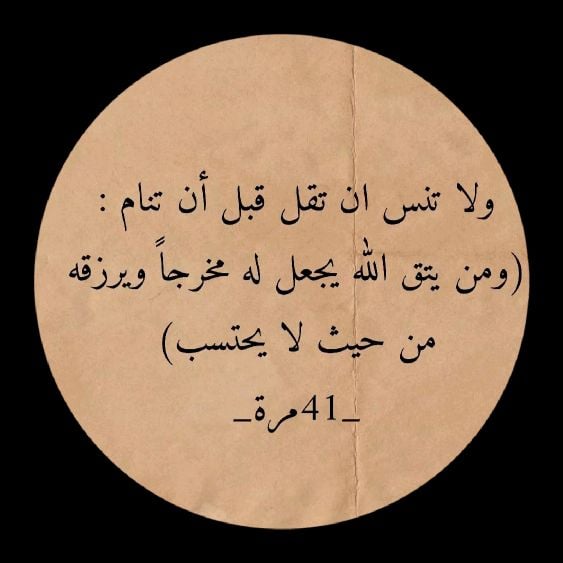 ولا تنس ان تقل قبل أن تنام :
(ومن يتق الله يجعل له مخرجاً ويرزقه
من حيث لا يحتسب)
_41مرة_